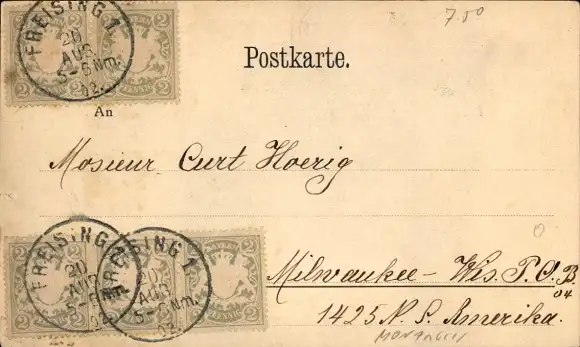 7.50
FREISING 1.
20
AUG.
5-6 Nm.
02.
2 2 2 2
PFENNIG
Postkarte.
An
Mosieur Curt Hoerig
FREISING 1.
20
AUG.
5-6 Nm.
02.
FREISING 1.
20
AUG.
5-6 Nm.
02.
BAYERN
2 2 2 2
PFENNIG
Milwaukee - Wis. P.O.B
04
1425 N. S. Amerika.